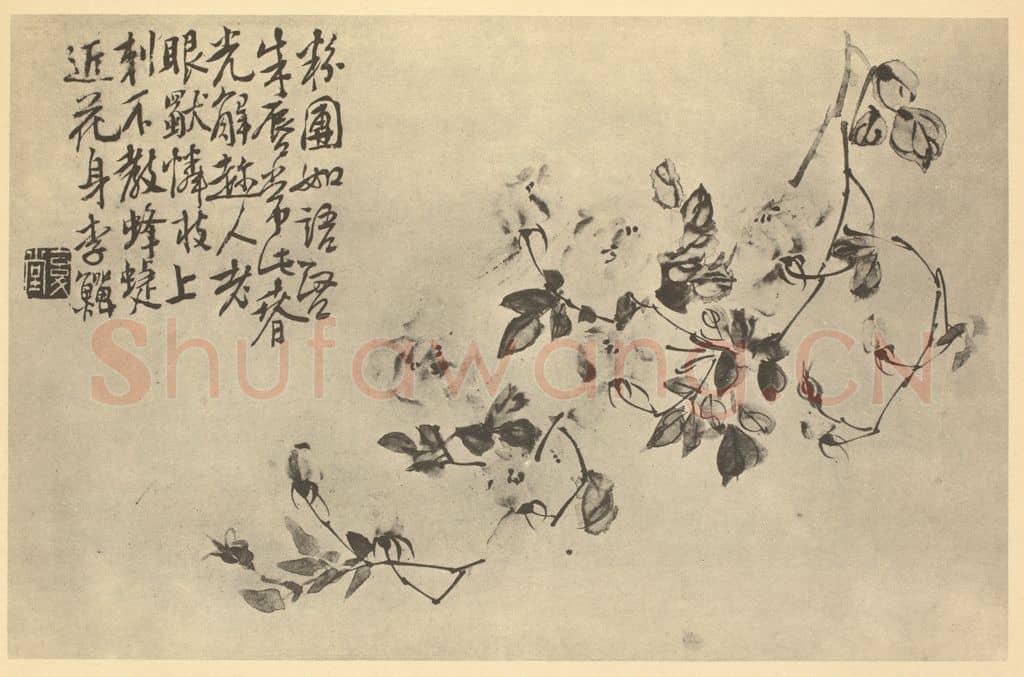 粉團如語啓
朱唇常春
光解趂人老
眼憐枝上
刺不教蜂蝶
近花身李鱓
复堂
Shufawang.CN